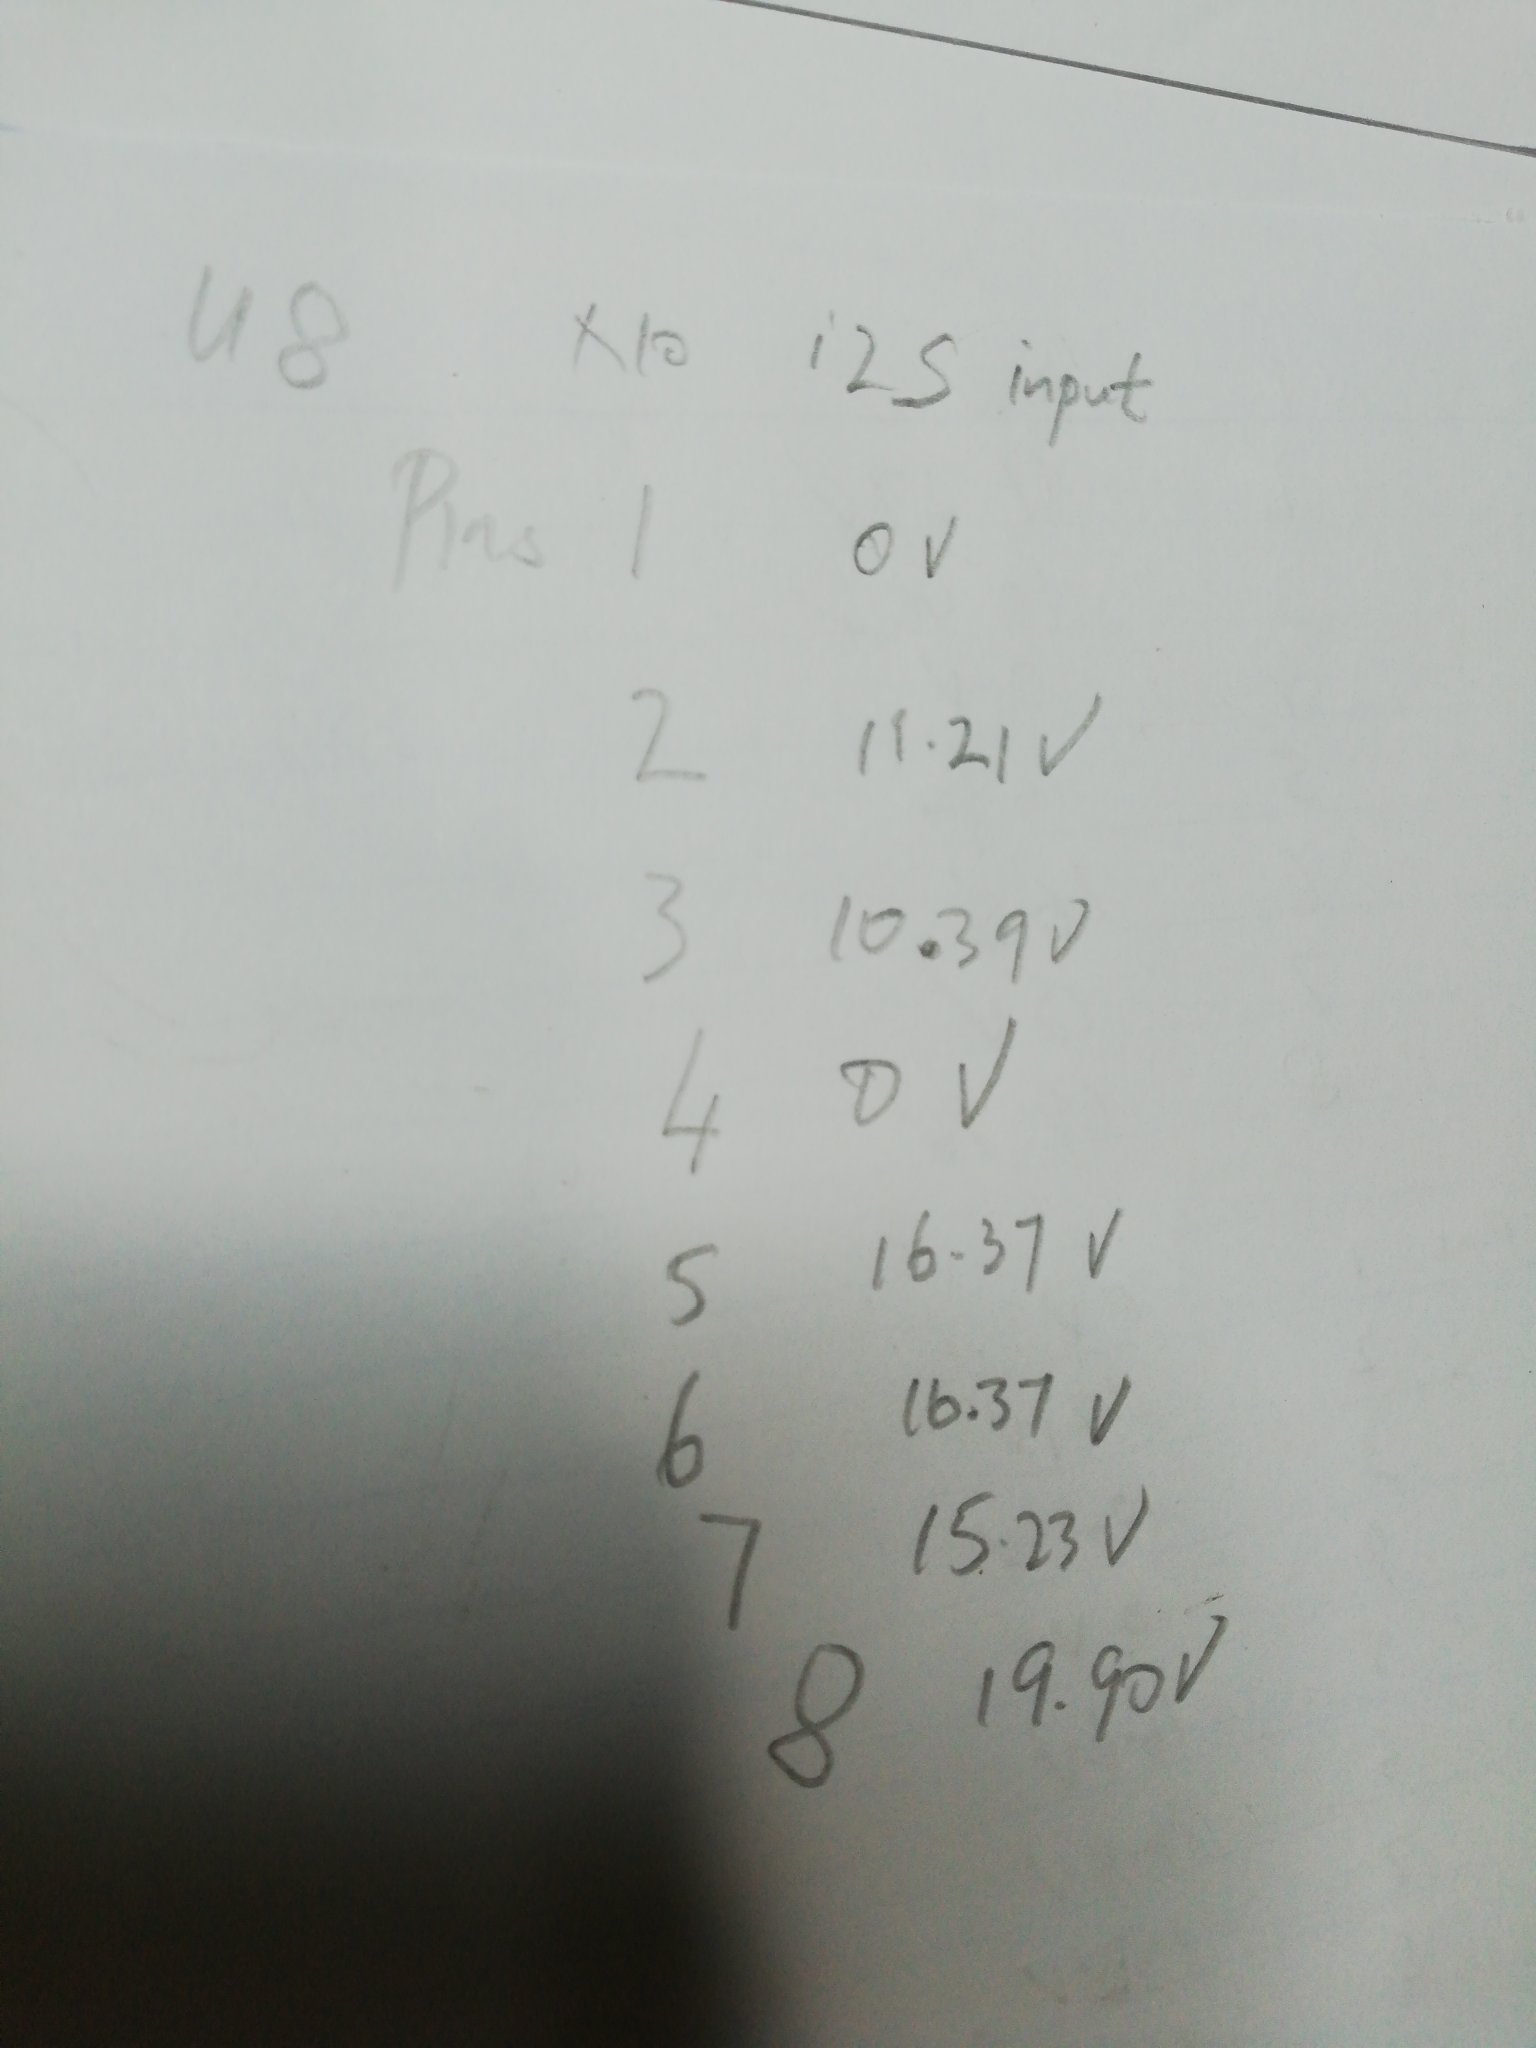 U8 X10 i2S input
Pins 1 0V
2 11.21V
3 10.39V
4 0V
5 16.37V
6 16.37V
7 15.23V
8 19.90V